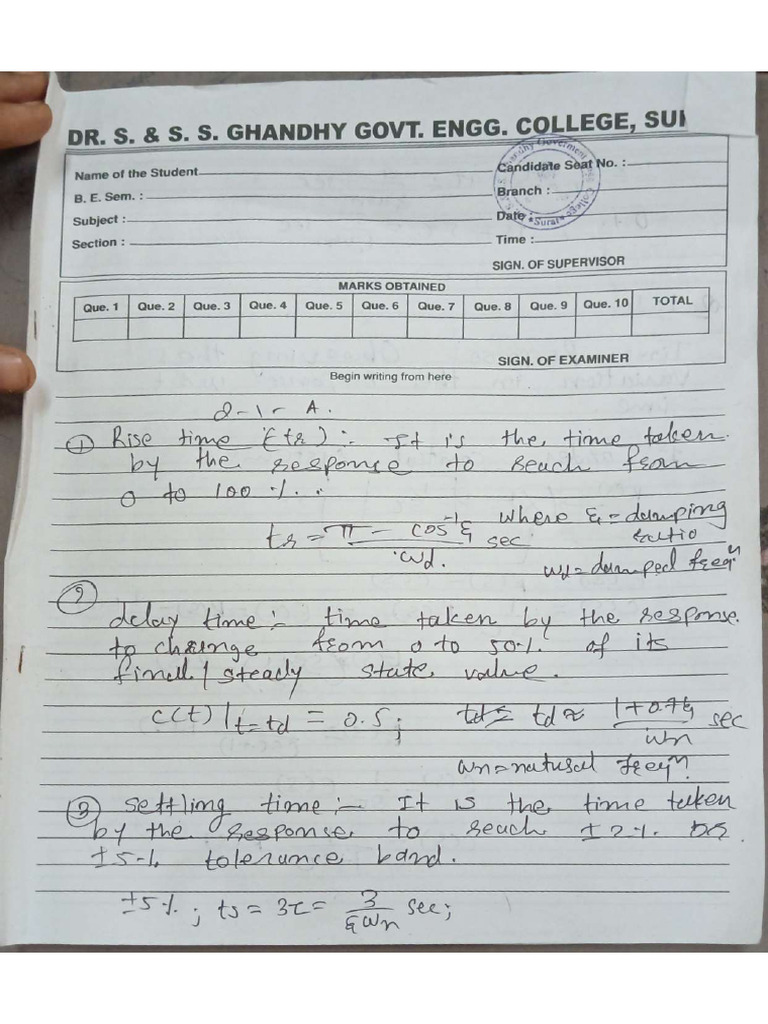 DR. S. & S. S. GHANDHY GOVT. ENGG. COLLEGE, SU
Name of the Student
Candidate Seat No. :
B. E. Sem. :
Branch :
Subject :
Date :
Section :
Time :
SIGN. OF SUPERVISOR
MARKS OBTAINED
Que. 1 Que. 2 Que. 3 Que. 4 Que. 5 Que. 6 Que. 7 Que. 8 Que. 9 Que. 10 TOTAL
SIGN. OF EXAMINER
Begin writing from here
Q-1- A.
① Rise time (tr) :- It is the time taken
by the response to reach from
0 to 100 %.
tr = π - cos⁻¹ξ / ωd. sec where ξ = damping ratio
ωd = damped freqⁿ
②
delay time :- time taken by the response
to change from 0 to 50% of its
final / steady state value.
c(t)|t=td = 0.5 ; td ≈ 1+0.7ξ / ωn sec
ωn = natural freqⁿ.
③ Settling time :- It is the time taken
by the response to reach ±2% or
±5% tolerance band.
±5% ; ts = 3τ = 3 / ξωn sec;